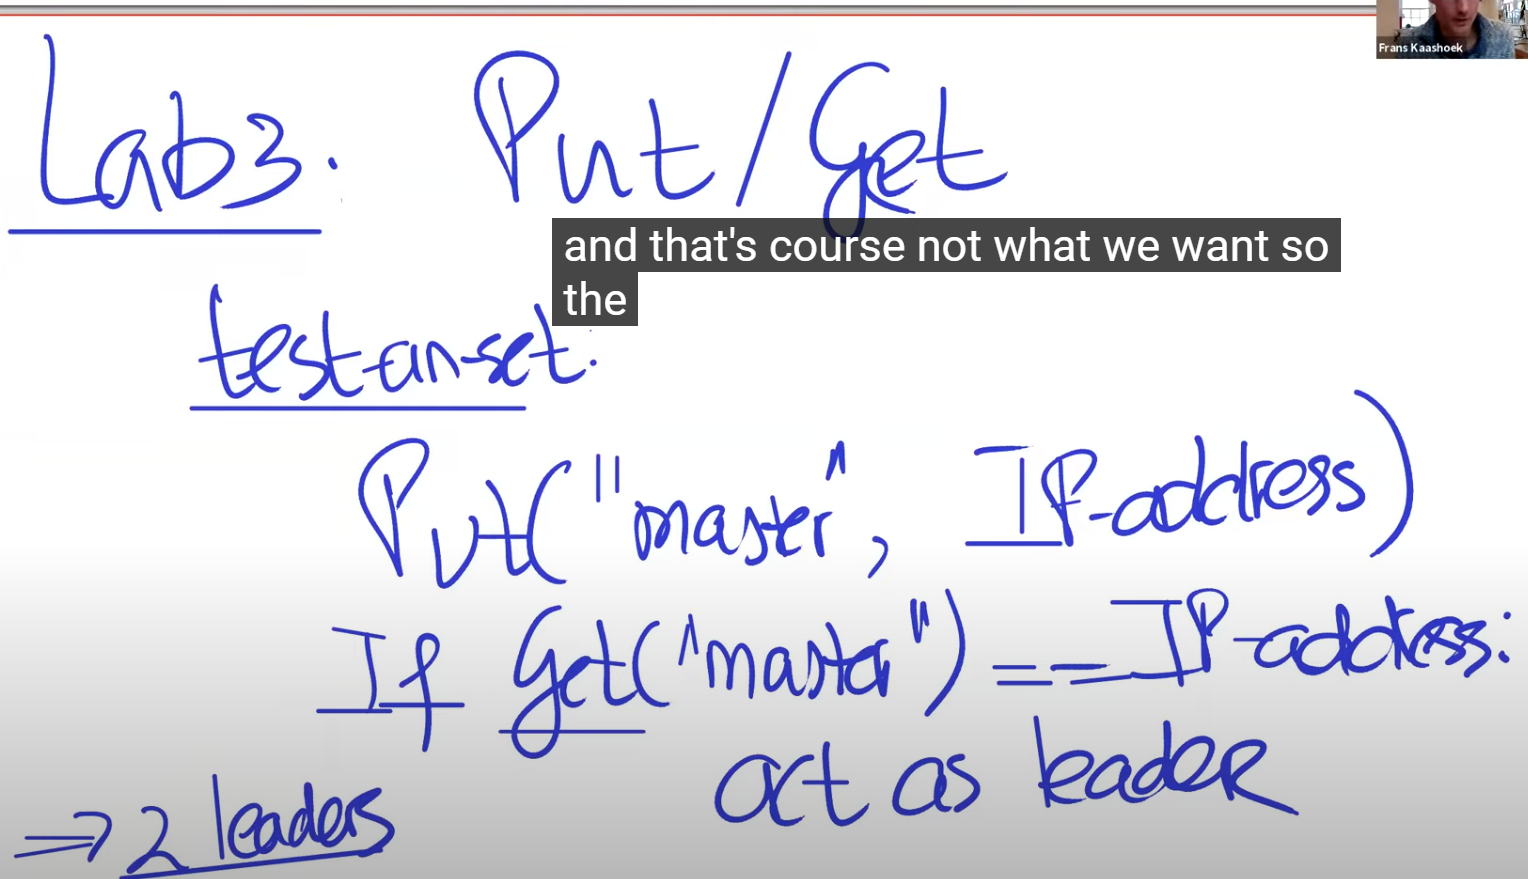 Frans Kaashoek
Lab3: Put/Get
and that's course not what we want so
the
test-an-set:
Put("master", IP-address)
If Get("master") == IP-address:
act as leader
⇒ 2 leaders